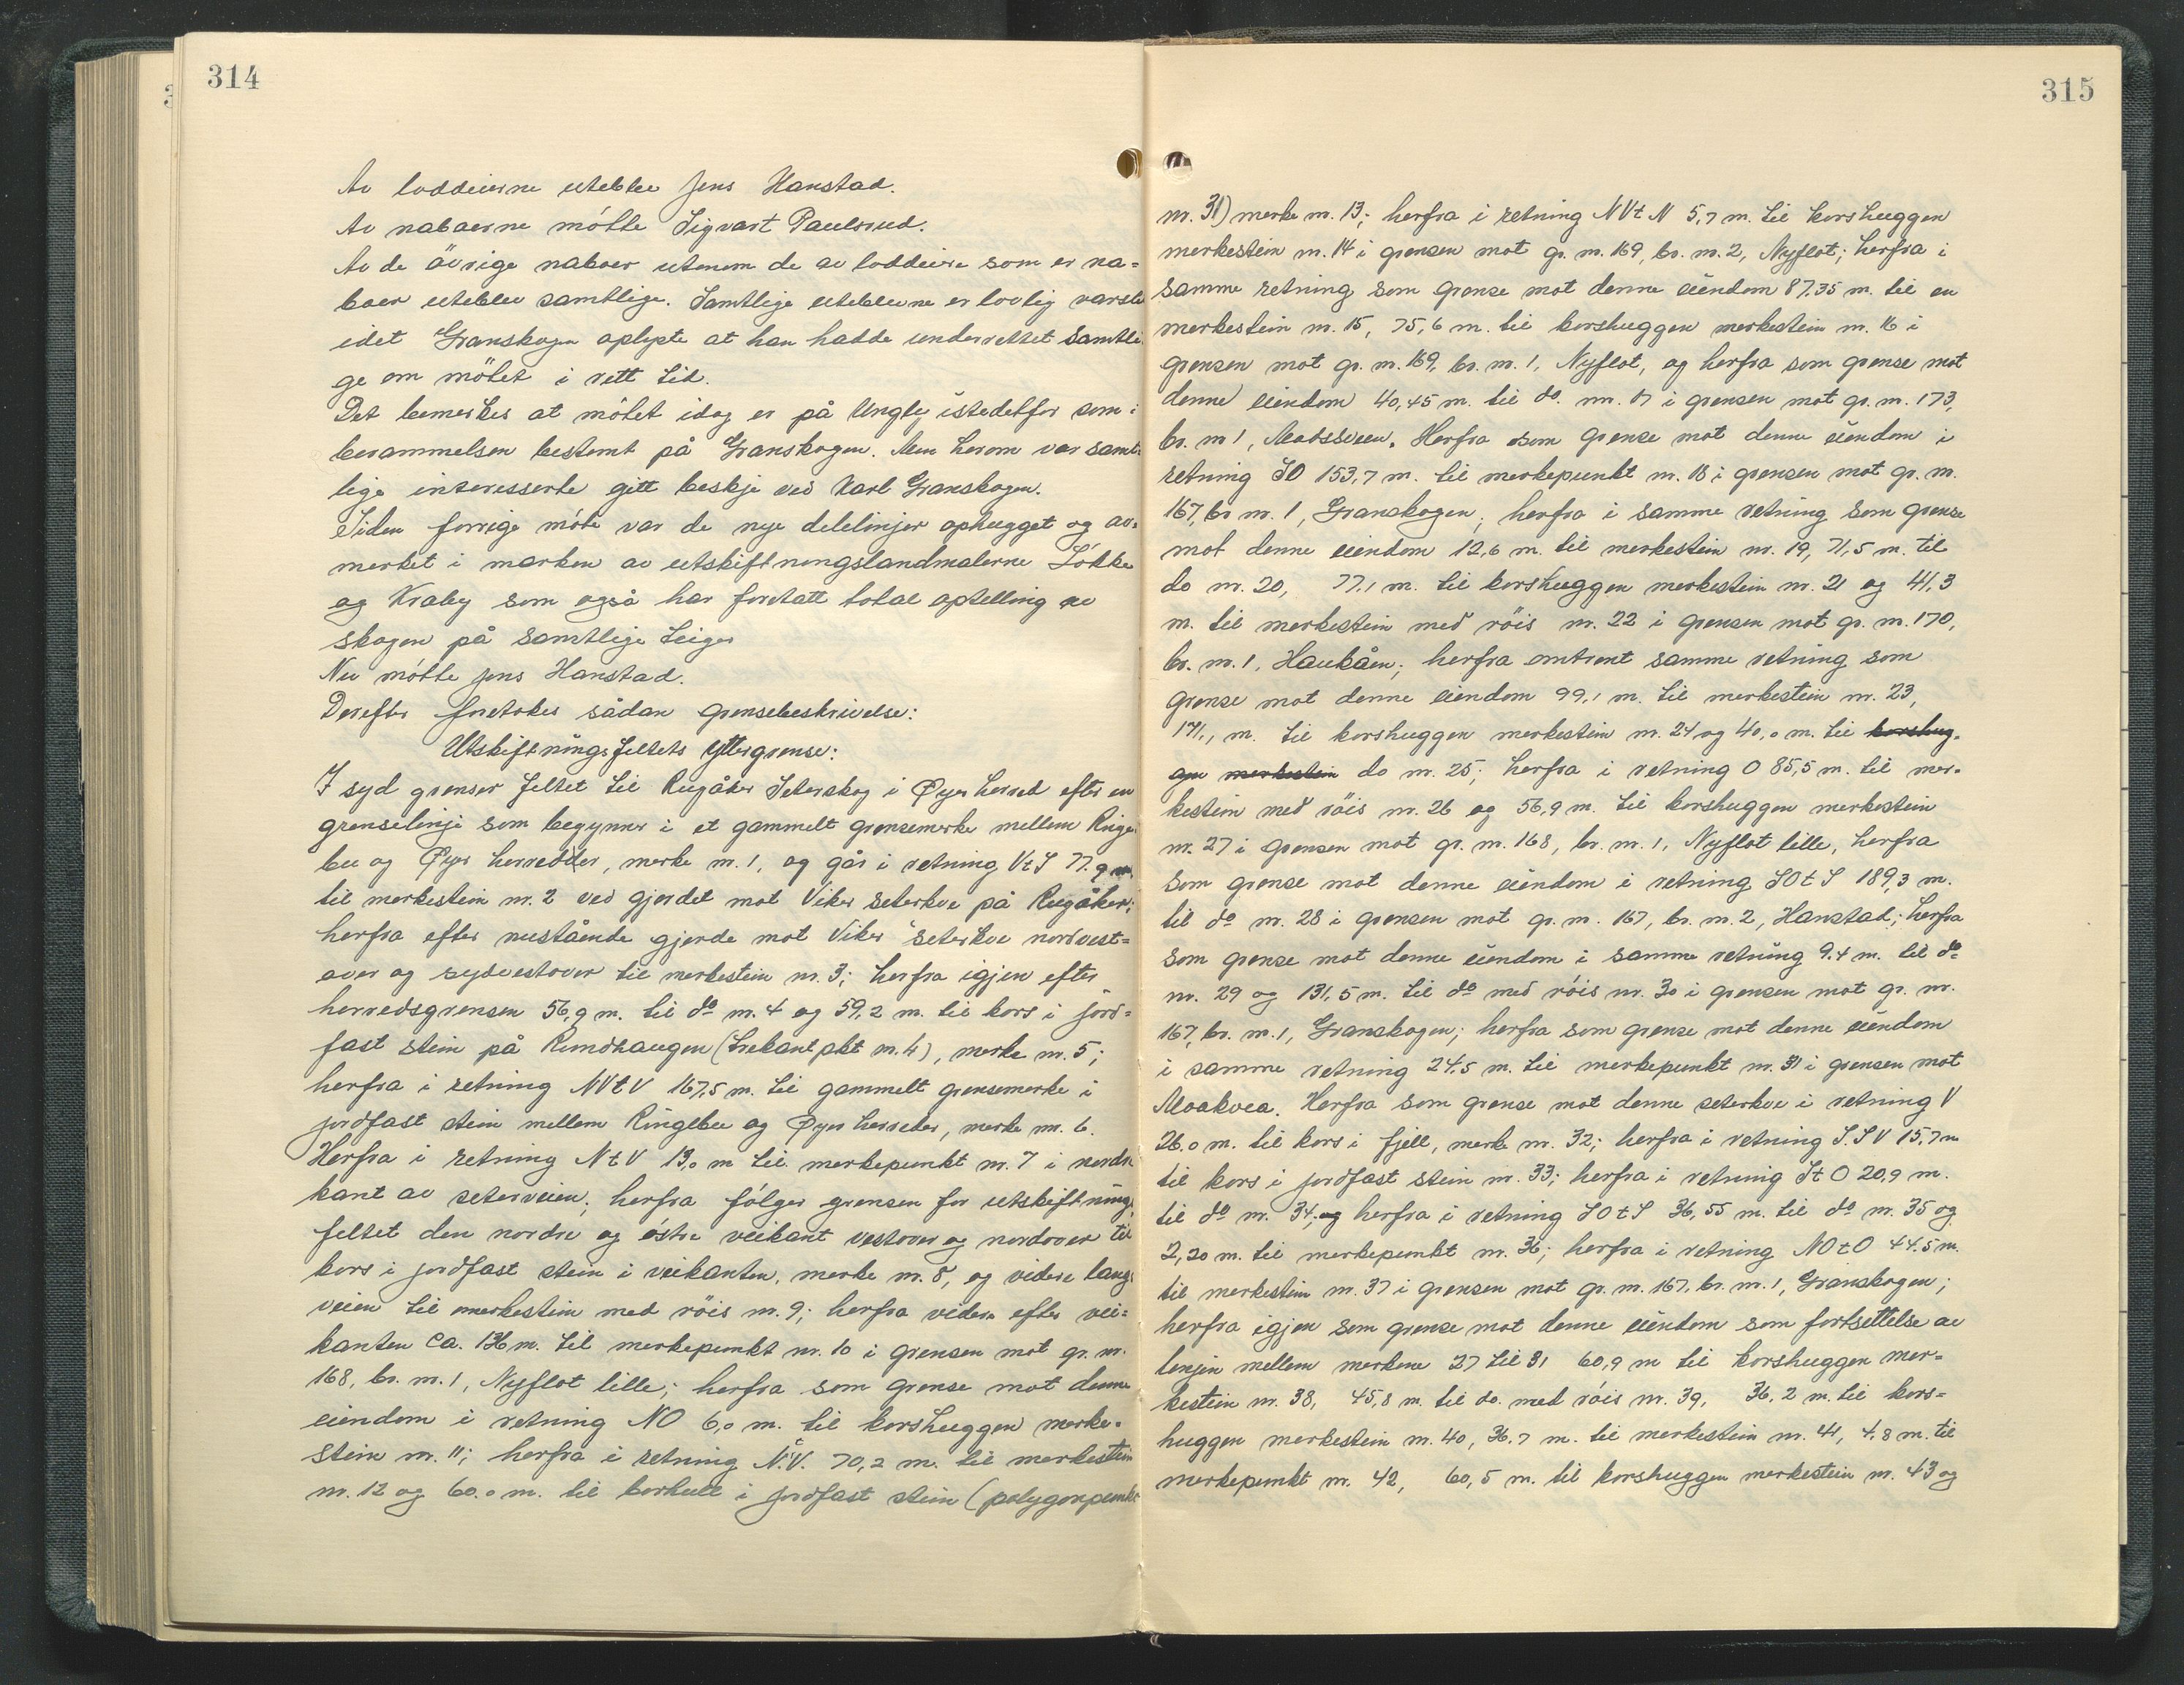 314
Av loddeierne uteblev Jens Hanstad.
Av naboerne møtte Sigvart Paulsrud.
Av de övrige naboer utenom de av loddeiere som er na=
boer uteblev samtlige. Samtlige uteblevne er lovlig varslet
idet Granskogen oplyste at han hadde underrettet samtli
ge om mötet i rett tid.
Det bemerkes at mötet idag er på Ungly istedetfor som i
berammelsen bestemt på Granskogen. Men herom var samt-
lige interesserte gitt beskje ved Karl Granskogen.
Siden forrige möte var de nye delelinjer ophugget og av=
merket i marken av utskiftningslandmålerne Lökke
og Kraby som også har foretatt total optelling av
skogen på samtlige teiger
Nu mötte Jens Hanstad.
Derefter foretokes sådan grensebeskrivelse:
Utskiftningsfeltets yttergrense:
I syd grenser feltet til Rugåker Seterskog i Øyer herred efter en
grenselinje som begynner i et gammelt grensemerke mellem Ringe
bu og Øyer herredder, merke nr. 1, og går i retning VtS 77.9 m.
til merkestein nr. 2 ved gjerdet mot Viker seterkve på Rugåker;
herfra efter nustående gjerde mot Viker seterkve nordvest=
over og sydvestover til merkestein nr. 3; herfra igjen efter
herredsgrensen 56,9 m. til do nr. 4 og 59,2 m. til kors i jord=
fast stein på Rundhaugen (trekant pkt nr. 4), merke nr. 5;
herfra i retning NVtV 167,5 m. til gammelt grensemerke i
jordfast stein mellem Ringebu og Øyer herreder, merke nr. 6.
Herfra i retning NtV 13,0 m til merkepunkt nr. 7 i nordre
kant av seterveien; herfra fölger grensen for utskiftnings
feltet den nordre og östre veikant vestover og nordover til
kors i jordfast stein i veikanten, merke nr. 8, og videre langs
veien til merkestein med röis nr. 9; herfra videre efter vei=
kanten ca. 136 m. til merkepunkt nr. 10 i grensen mot gr. nr.
168, br. nr. 1, Nyflot lille; herfra som grense mot denne
eiendom i retning NO 6,0 m. til korshuggen merke=
stein nr. 11; herfra i retning N.V. 70,2 m. til merkestein
nr. 12 og 60.0 m. til borhull i jordfast stein (polygonpunkt
315
nr. 31) merke nr. 13; herfra i retning NVtN 5,7 m. til korshuggen
merkestein nr. 14 i grensen mot gr. nr. 169, br. nr. 2, Nyflot; herfra i
samme retning som grense mot denne eiendom 87,35 m. til en
merkestein nr. 15, 75,6 m. til korshuggen merkestein nr. 16 i
grensen mot gr. nr. 169, br. nr. 1, Nyflot, og herfra som grense mot
denne eiendom 40,45 m. til do. nr. 17 i grensen mot gr. nr. 173,
br. nr 1, Madssveen. Herfra som grense mot denne eiendom i
retning SO 153,7 m. til merkepunkt nr. 18 i grensen mot gr. nr.
167, br nr. 1, Granskogen; herfra i samme retning som grense
mot denne eiendom 12,6 m. til merkestein nr. 19, 71,5 m. til
do nr. 20, 77,1 m. til korshuggen merkestein nr. 21 og 41,3
m. til merkestein med röis nr. 22 i grensen mot gr. nr. 170,
br. nr. 1, Haukåen; herfra omtrent samme retning som
grense mot denne eiendom 99,1 m. til merkestein nr. 23,
171,1 m. til korshuggen merkestein nr. 24 og 40,0 m. til korshug-
gen merkestein do nr. 25; herfra i retning O 85,5 m. til mer=
kestein med röis nr. 26 og 56,9 m. til korshuggen merkestein
nr. 27 i grensen mot gr. nr. 168, br. nr. 1, Nyflot lille, herfra
som grense mot denne eiendom i retning SOtS 189,3 m.
til do nr. 28 i grensen mot gr. nr. 167, br. nr. 2, Hanstad; herfra
som grense mot denne eiendom i samme retning 9.4 m. til do
nr. 29 og 131,5 m. til do med röis nr. 30 i grensen mot gr. nr.
167, br. nr. 1, Granskogen; herfra som grense mot denne eiendom
i samme retning 24.5 m. til merkepunkt nr. 31 i grensen mot
Moakvea. Herfra som grense mot denne seterkve i retning V
26.0 m. til kors i fjell, merke nr. 32; herfra i retning S.SV 15,7 m
til kors i jordfast stein nr. 33; herfra i retning StO 20,9 m.
til do nr. 34; og herfra i retning SOtS 36,55 m. til do nr. 35 og
2,20 m. til merkepunkt nr. 36; herfra i retning NOtO 44.5 m.
til merkestein nr. 37 i grensen mot gr. nr. 167, br. nr. 1, Granskogen;
herfra igjen som grense mot denne eiendom som fortsettelse av
linjen mellem merkene 27 til 31 60,9 m til korshuggen mer=
kestein nr. 38, 45,8 m. til do. med röis nr. 39, 36,2 m. til kors=
huggen merkestein nr. 40, 36.7 m. til merkestein nr. 41, 4.8 m. til
merkepunkt nr. 42, 60,5 m. til korshuggen merkestein nr. 43 og